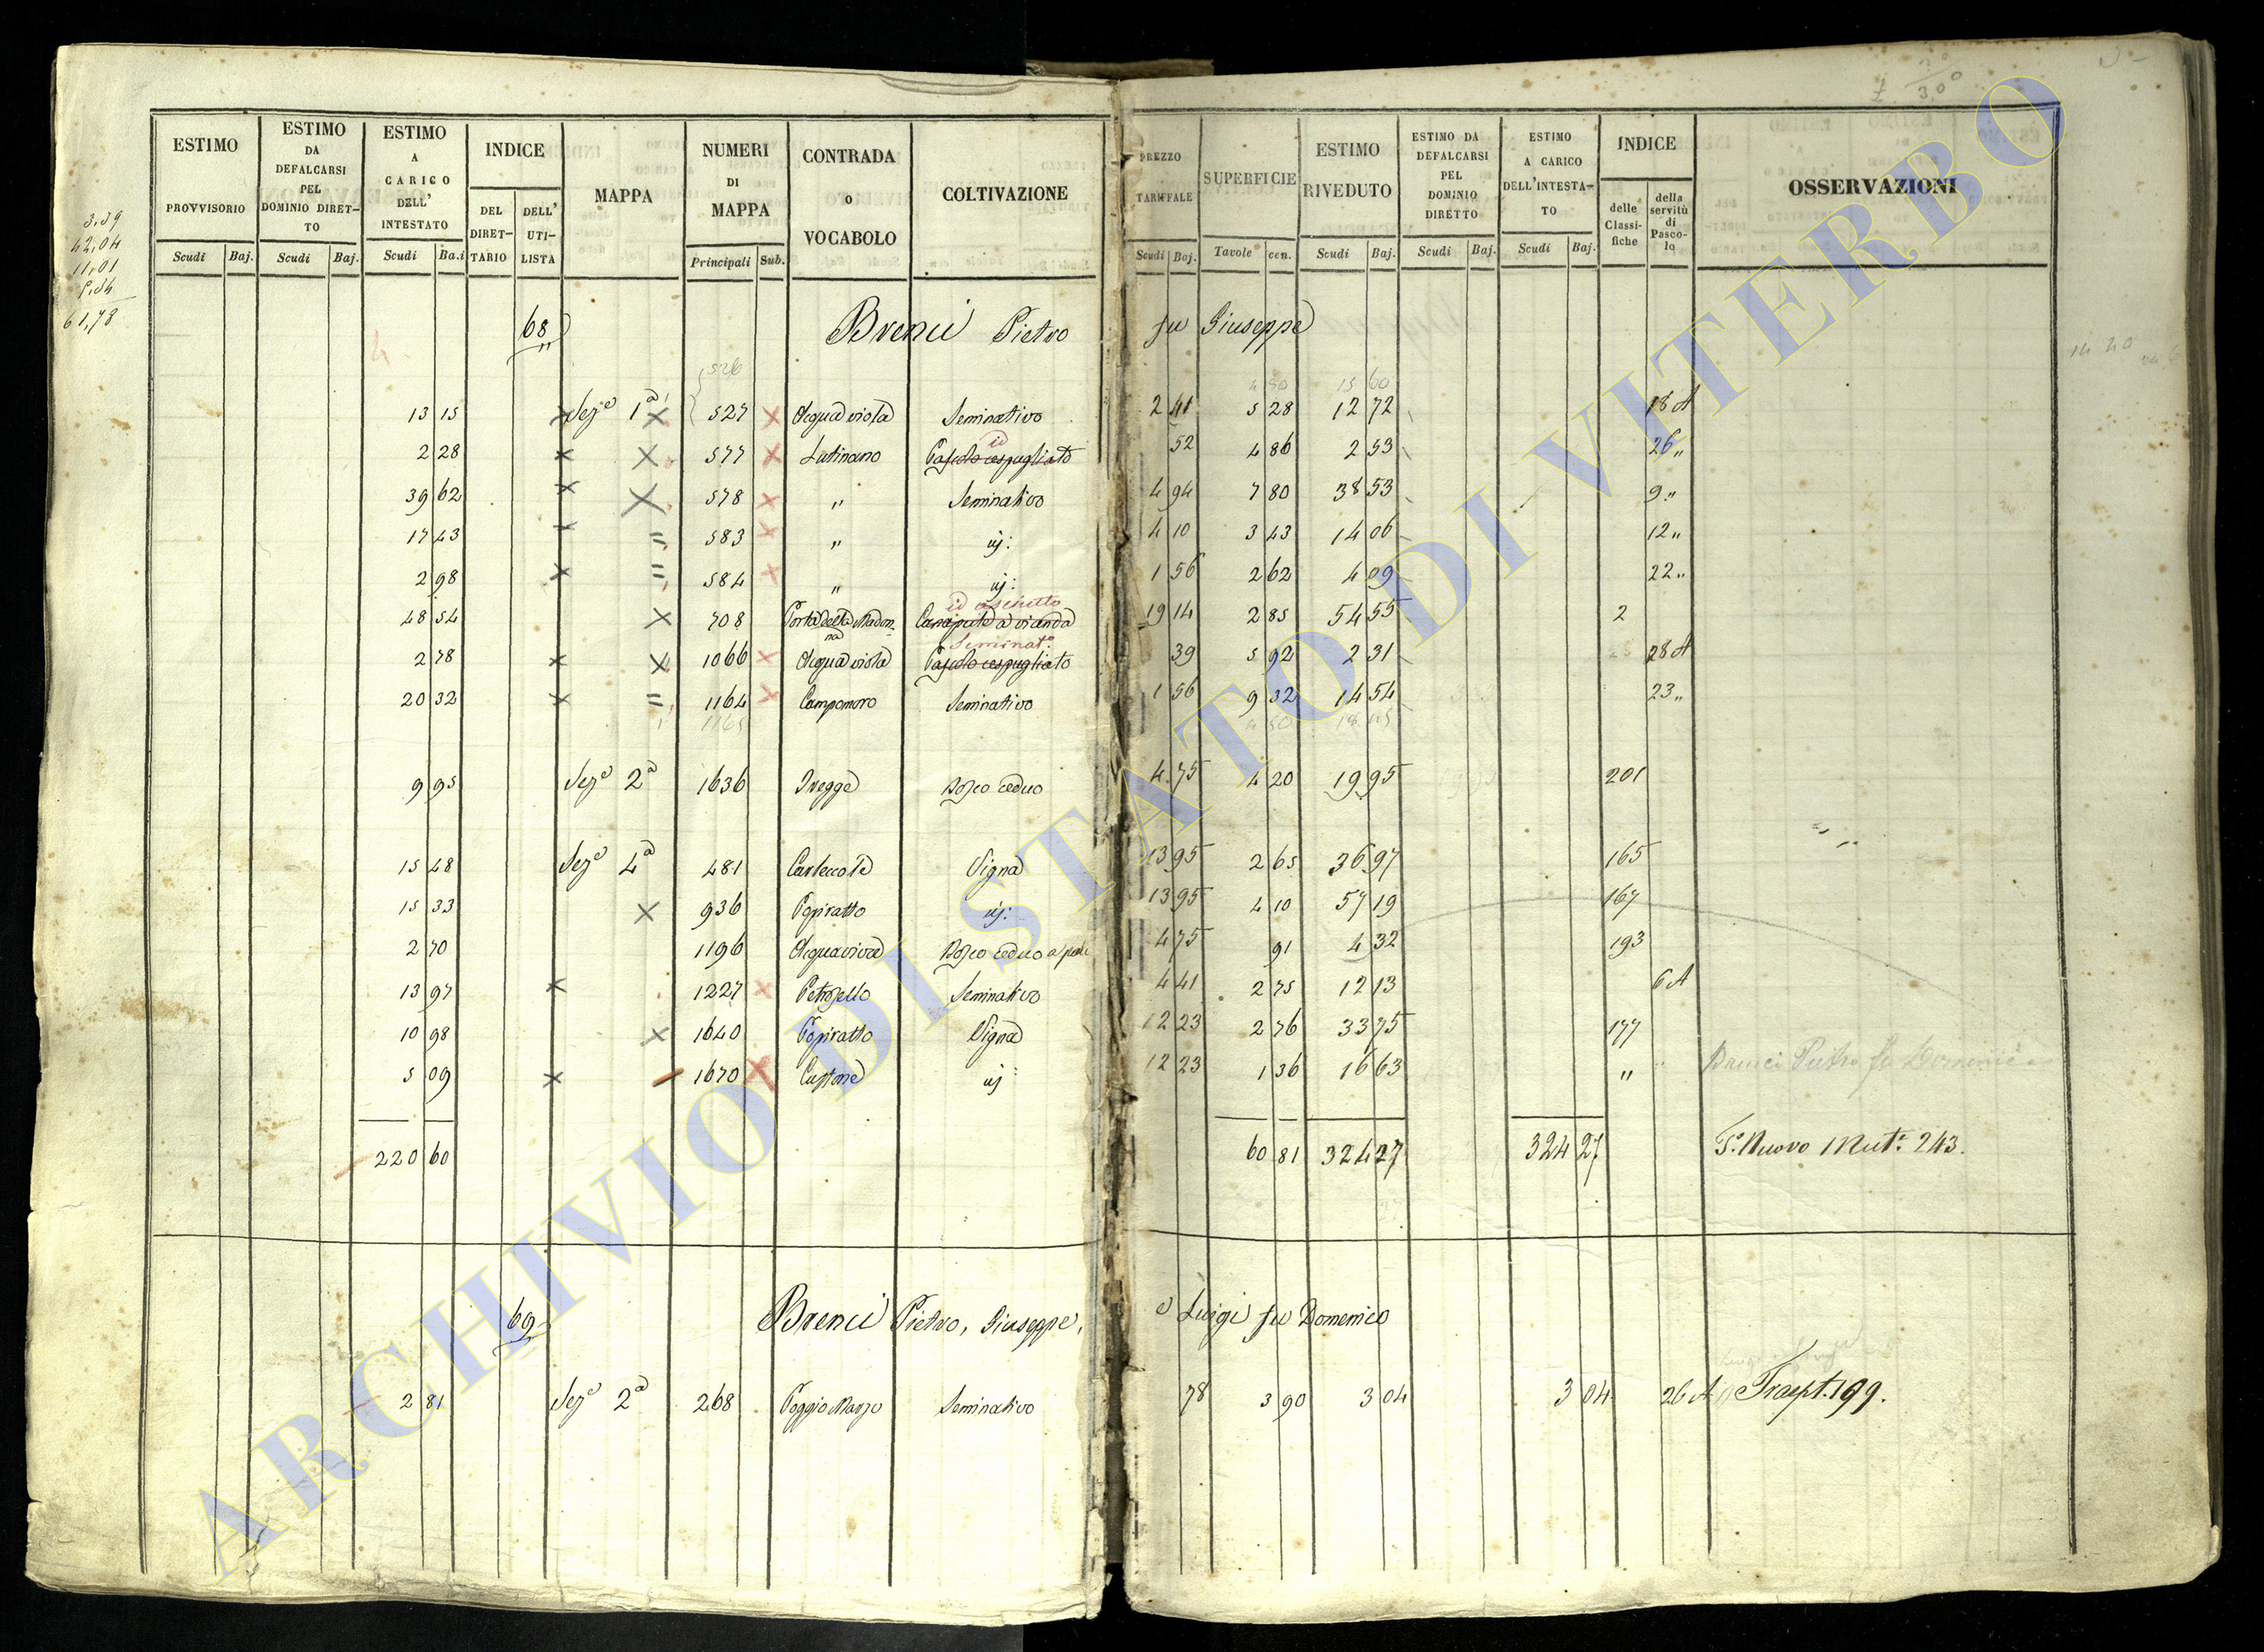 ESTIMO PROVVISORIO Scudi Baj.
ESTIMO DA DEFALCARSI PEL DOMINIO DIRETTO Scudi Baj.
ESTIMO A CARICO DELL' INTESTATO Scudi Ba.i
INDICE DEL DIRETTARIO DELL' UTILISTA
MAPPA
NUMERI DI MAPPA Principali Sub.
CONTRADA O VOCABOLO
COLTIVAZIONE
PREZZO TARIFFALE Scudi Baj.
SUPERFICIE Tavole cen.
ESTIMO RIVEDUTO Scudi Baj.
ESTIMO DA DEFALCARSI PEL DOMINIO DIRETTO Scudi Baj.
ESTIMO A CARICO DELL'INTESTATO Scudi Baj.
INDICE delle Classifiche della servitù di Pascolo
OSSERVAZIONI
42,04
11,01
61,78
68 Brenci Pietro fu Giuseppe
526 4 50 15 60
13 15 Seze 1a 527 Acqua viola Seminativo 2 41 5 28 12 72 18 A
id
2 28 577 Lutinano Pascolo cespugliato 52 4 86 2 53 26 "
39 62 578 " Seminativo 4 94 7 80 38 53 9 "
17 43 583 " id: 4 10 3 43 14 06 12 "
2 98 584 " id: 1 56 2 62 4 09 22 "
id asciutto
48 54 708 Porta della Madonna Canapule a vicenda 19 14 2 85 54 55 2
Seminato
2 78 1066 Acqua viola Pascolo cespugliato 39 5 92 2 31 28 A
20 32 1164 Campomoro Seminativo 1 56 9 32 14 54 23 "
1165
9 95 Seze 2a 1636 Ivegge Bosco ceduo 4 75 4 20 19 95 201
15 48 Seze 4a 481 Carleccote Vigna 13 95 2 65 36 97 165
15 33 936 Popiratto id: 13 95 4 10 57 19 167
2 70 1196 Acquaviva Bosco ceduo a pali 4 75 91 4 32 193
13 97 1227 Petrosello Seminativo 4 41 2 75 12 13 6 A
10 98 1640 Popiratto Vigna 12 23 2 76 33 75 177
5 09 1670 id 12 23 1 36 16 63 "
Brenci Pietro fu Domenico
220 60 60 81 324 27 324 27 Po. Nuovo Mut: 243.
69 Brenci Pietro, Giuseppe, e Luigi fu Domenico
2 81 Seze 2a 268 Poggio Marzo Seminativo 78 3 90 3 04 3 04 26 A Traspt. 199.
ARCHIVIO DI STATO DI VITERBO